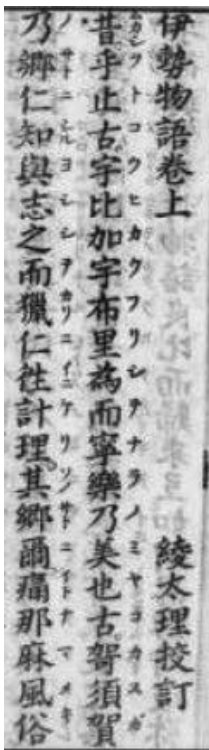 伊勢物語巻上 綾太理挍訂
ムカシヲトコウヒカウフリシテナラノミヤコカスガ
昔乎止古宇比加宇布里為而寧樂乃美也古哿須賀
ノサトニシルヨシシテカリニイニケリソノサトニイトナマメキ
乃郷仁知與志之而獵仁徃計理。其郷爾痛那麻風俗